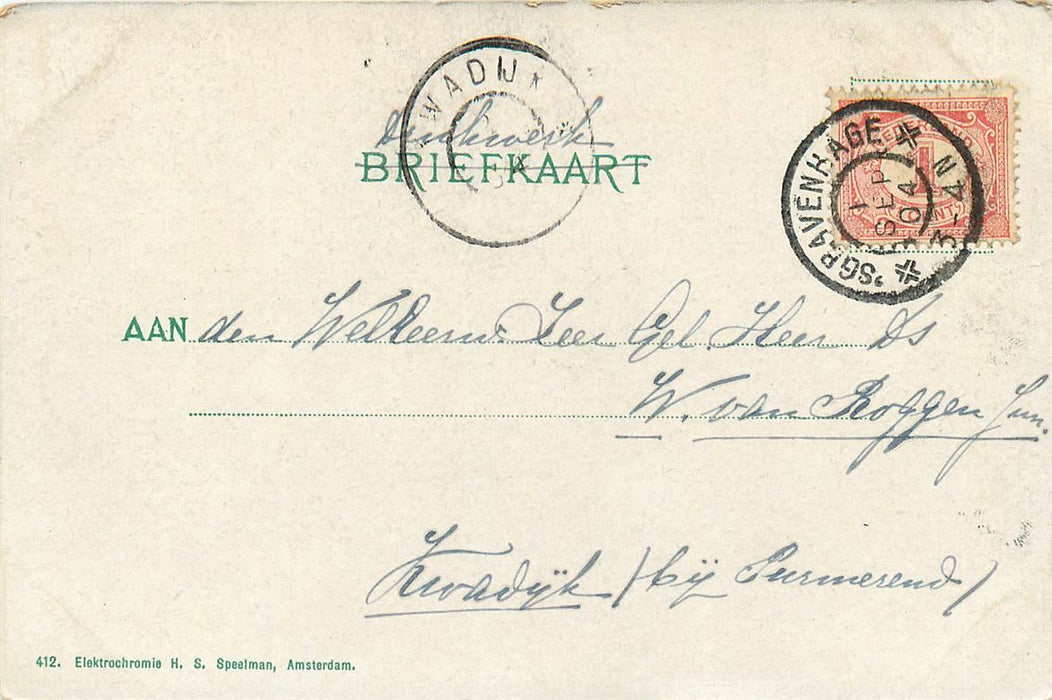 KWADIJK
Drukwerk
BRIEFKAART
'SGRAVENHAGE N
1 SEP 04
3-4
AAN den Weleerw. Zeer Gel. Heer Ds
W. van Roggen Jun.
Kwadijk (bij Purmerend)
412. Elektrochromie H. S. Speelman, Amsterdam.